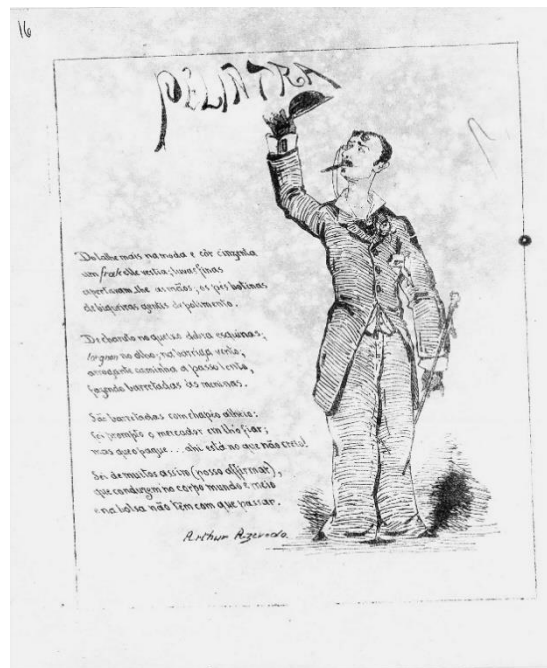 16
PELINTRA
Do talhe mais na moda e côr cinzenta
um frak elle vestia; luvas finas
apertavam-lhe as mãos; os pés botinas
de biqueiras agutis de polimento.
De charuto no queixo dobra esquinas;
lorgnon no olho; na barriga vento;
arrogante caminha a passo lento,
fazendo barretadas ás meninas.
São barretadas com chapéo alheio:
foi prompto o mercador em lh'o fiar;
mas que o pague... ahi está no que não creio!
Sei de muitos assim (posso affirmar),
que conduzem no corpo mundo e meio
e na bolsa não têm com que passar.
Arthur Azevedo.